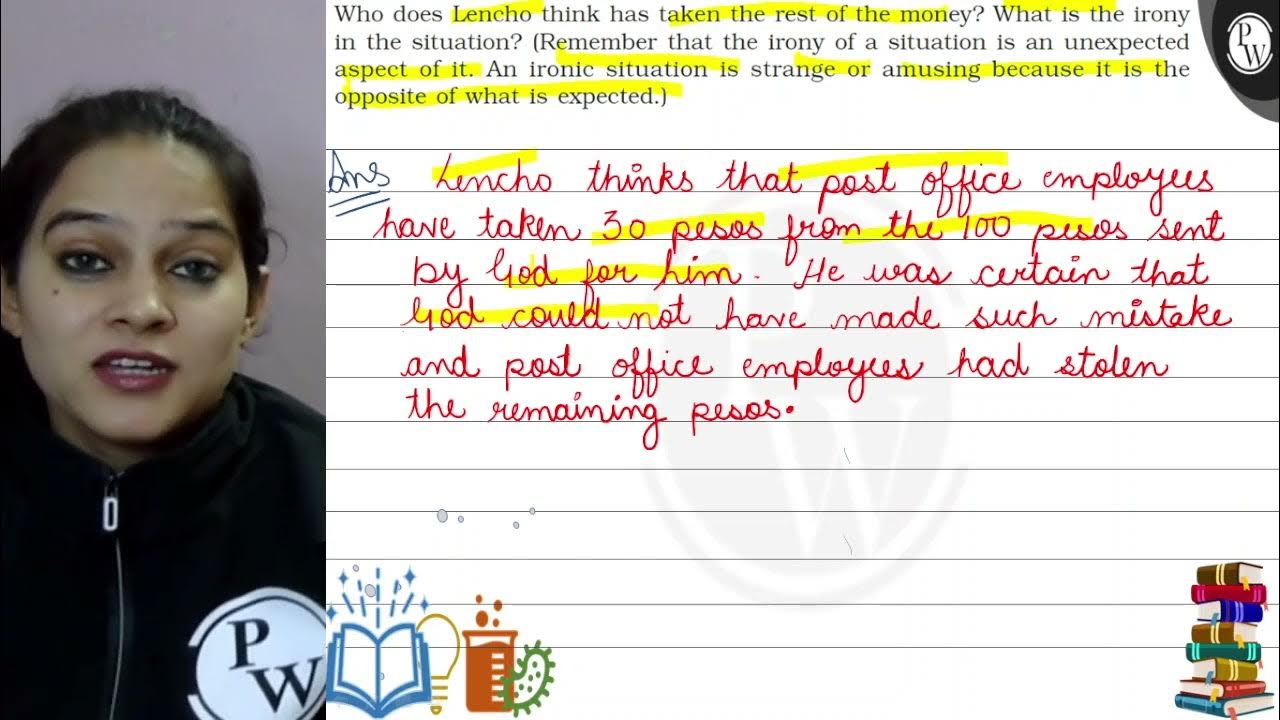 Who does Lencho think has taken the rest of the money? What is the irony
in the situation? (Remember that the irony of a situation is an unexpected
aspect of it. An ironic situation is strange or amusing because it is the
opposite of what is expected.)
PW
Ans Lencho thinks that post office employees
have taken 30 pesos from the 100 pesos sent
by God for him. He was certain that
God could not have made such mistake
and post office employees had stolen
the remaining pesos.
PW
PW